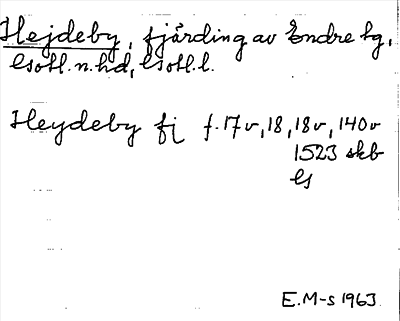 Hejdeby, fjärding av Endre tg,
Gotl. n. hd, Gotl. l.
Heydeby fj f. 17 v, 18, 18v, 140v
1523 skb
G
E.M-s 1963